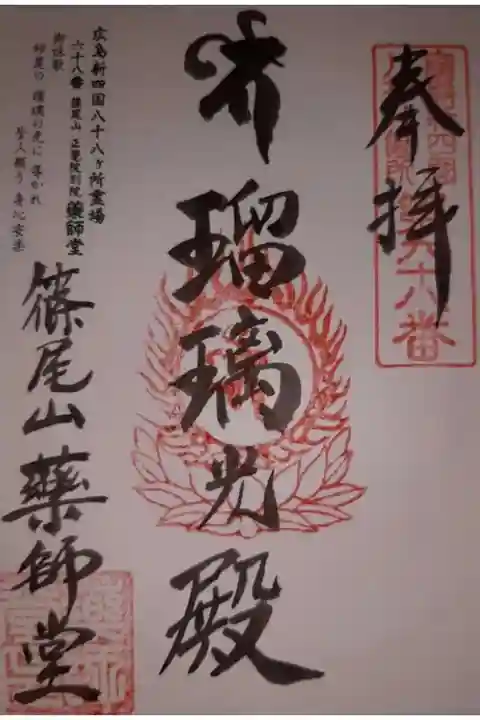 奉拝
第六十八番
瑠璃光殿
広島新四国八十八ヶ所霊場
六十八番 篠尾山 正覚院別院 薬師堂
御詠歌
瑠璃の光に 導かれ
皆人願う 身心安楽
篠尾山薬師堂